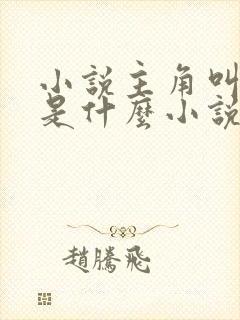 小說主角叫
是什麼小說
趙騰飛